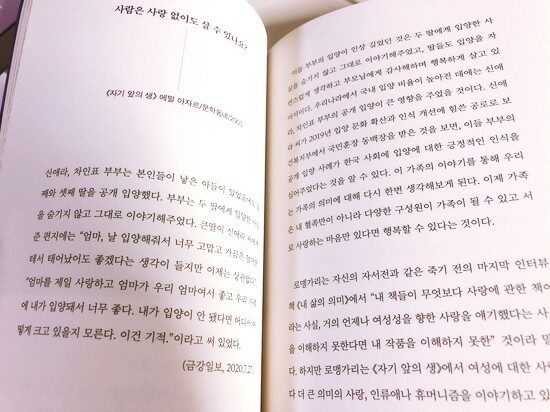 사람은 사랑 없이도 살 수 있나요?
《자기 앞의 생》 에밀 아자르/문학동네
신애라, 차인표 부부는 본인들이 낳은 아들이
째와 셋째 딸을 공개 입양했다. 부부는 두 딸에게 입양
을 숨기지 않고 그대로 이야기해주었다. 큰딸이 신애라
준 편지에는 “엄마, 날 입양해줘서 너무 고맙고 가끔은
태서 태어났어도 좋겠다는 생각이 들지만 이제는 상관없다.
“엄마를 제일 사랑하고 엄마가 우리 엄마여서 좋고 우리
에 내가 입양돼서 너무 좋다. 내가 입양이 안 됐다면 어디서
떻게 크고 있을지 모른다. 이건 기적.”이라고 써 있었다.
(금강일보, 2020.7.27
이들 부부의 입양이 인상 깊었던 것은 두 딸에게 입양한 사
실을 숨기지 않고 그대로 이야기해주었고, 딸들도 입양을 자
연스럽게 생각하고 부모님에게 감사해하며 행복하게 살고 있
어서이다. 우리나라에서 국내 입양 비율이 높아진 데에는 신애
라, 차인표 부부의 공개 입양이 큰 영향을 주었을 것이다. 신애
라 씨가 2019년 입양 문화 확산과 인식 개선에 힘쓴 공로로 보
건복지부에서 국민훈장 동백장을 받은 것을 보면, 이들 부부의
공개 입양 사례가 한국 사회에 입양에 대한 긍정적인 인식을
심어주었다는 것을 알 수 있다. 이 가족의 이야기를 통해 우리
는 가족의 의미에 대해 다시 한번 생각해보게 된다. 이제 가족
은 내 혈족만이 아니라 다양한 구성원이 가족이 될 수 있고 서
로 사랑하는 마음만 있다면 행복할 수 있다는 것이다.
로맹가리는 자신의 자서전과 같은 죽기 전의 마지막 인터뷰
책 《내 삶의 의미》에서 “내 책들이 무엇보다 사랑에 관한 책이
라는 사실, 거의 언제나 여성성을 향한 사랑을 얘기했다는 사
을 이해하지 못한다면 내 작품을 이해하지 못한” 것이라 말
다. 하지만 로맹가리는 《자기 앞의 생》에서 여성에 대한 사랑
다 더 큰 의미의 사랑, 인류애나 휴머니즘을 이야기하고